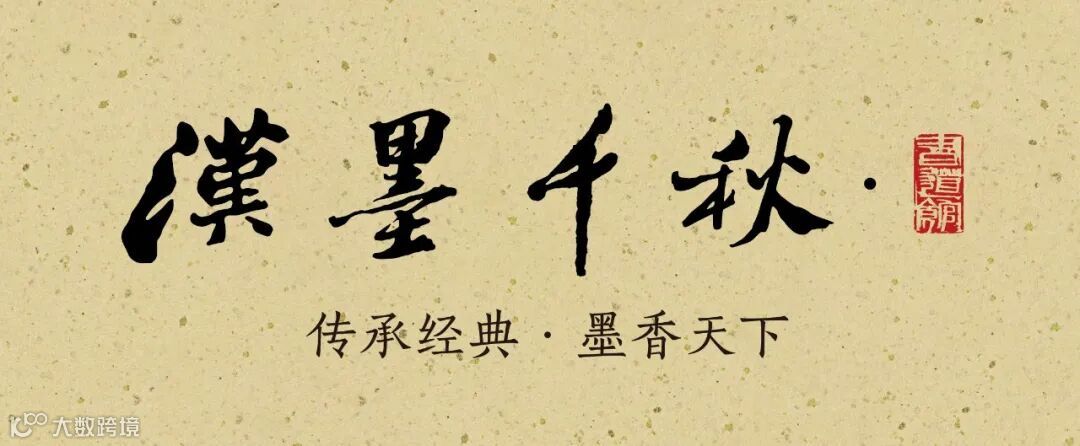 漢墨千秋·
書道館
传承经典·墨香天下
大数跨境